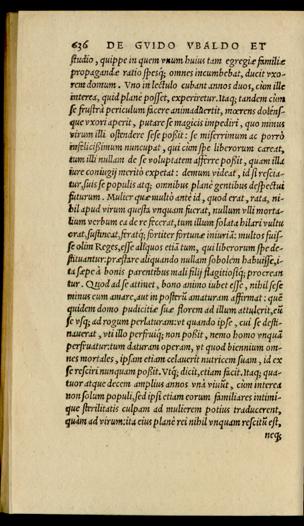 636 DE GVIDO VBALDO ET
studio, quippe in quem vnum huius tam egregiæ familiæ
propagandæ ratio spesq; omnes incumbebat, ducit vxo-
rem domum. Vno in lectulo cubant annos duos, cùm ille
interea, quid planè posset, experiretur. Itaq; tandem cùm
se frustrà periculum facere animaduertit, mœrens dolens-
que vxori aperit, putare se magicis impediri, quo minus
virum illi ostendere sese poßit: se miserrimum ac porrò
infelicißimum nuncupat, qui cùm spe liberorum careat,
tum illi nullam de se voluptatem afferre poßit, quam illa
iure coniugij meritò expetat: demum videat, id si rescia-
tur, suis se populis atq; omnibus planè gentibus despectui
futurum. Mulier quæ multò ante id, quod erat, rata, ni-
hil apud virum questa vnquam fuerat, nullum vlli morta-
lium verbum ea de re fecerat, tum illum solata hilari vultu
erat, sustineat, feratq; fortiter fortunæ iniuriã: multos fuis-
se olim Reges, esse aliquos etiã tum, qui liberorum spe de-
stituantur: præstare aliquando nullam sobolem habuisse, i-
ta sæpè à bonis parentibus mali filij flagitiosiq; procrean
tur. Quod ad se attinet, bono animo iubet esse, nihil se se
minus eum amare, aut in posterũ amaturam affirmat: quẽ
quidem domo pudicitiæ suæ florem ad illum attulerit, eũ
se vsq; ad rogum perlaturam: vt quando ipse, cui se desti-
nauerat, vti illo perfruiq; non poßit, nemo homo vnquã
perfruatur: tum daturam operam, vt quod biennium om-
nes mortales, ipsam etiam celauerit nutricem suam, id ex
se resciri nunquam poßit. Vtq; dicit, etiam facit. Itaq; qua-
tuor atque decem amplius annos vnà viuũt, cùm interea
non solum populi, sed ipsi etiam eorum familiares intimi-
que sterilitatis culpam ad mulierem potius traducerent,
quàm ad virum: ita eius planè rei nihil vnquam rescitũ est,
neq;